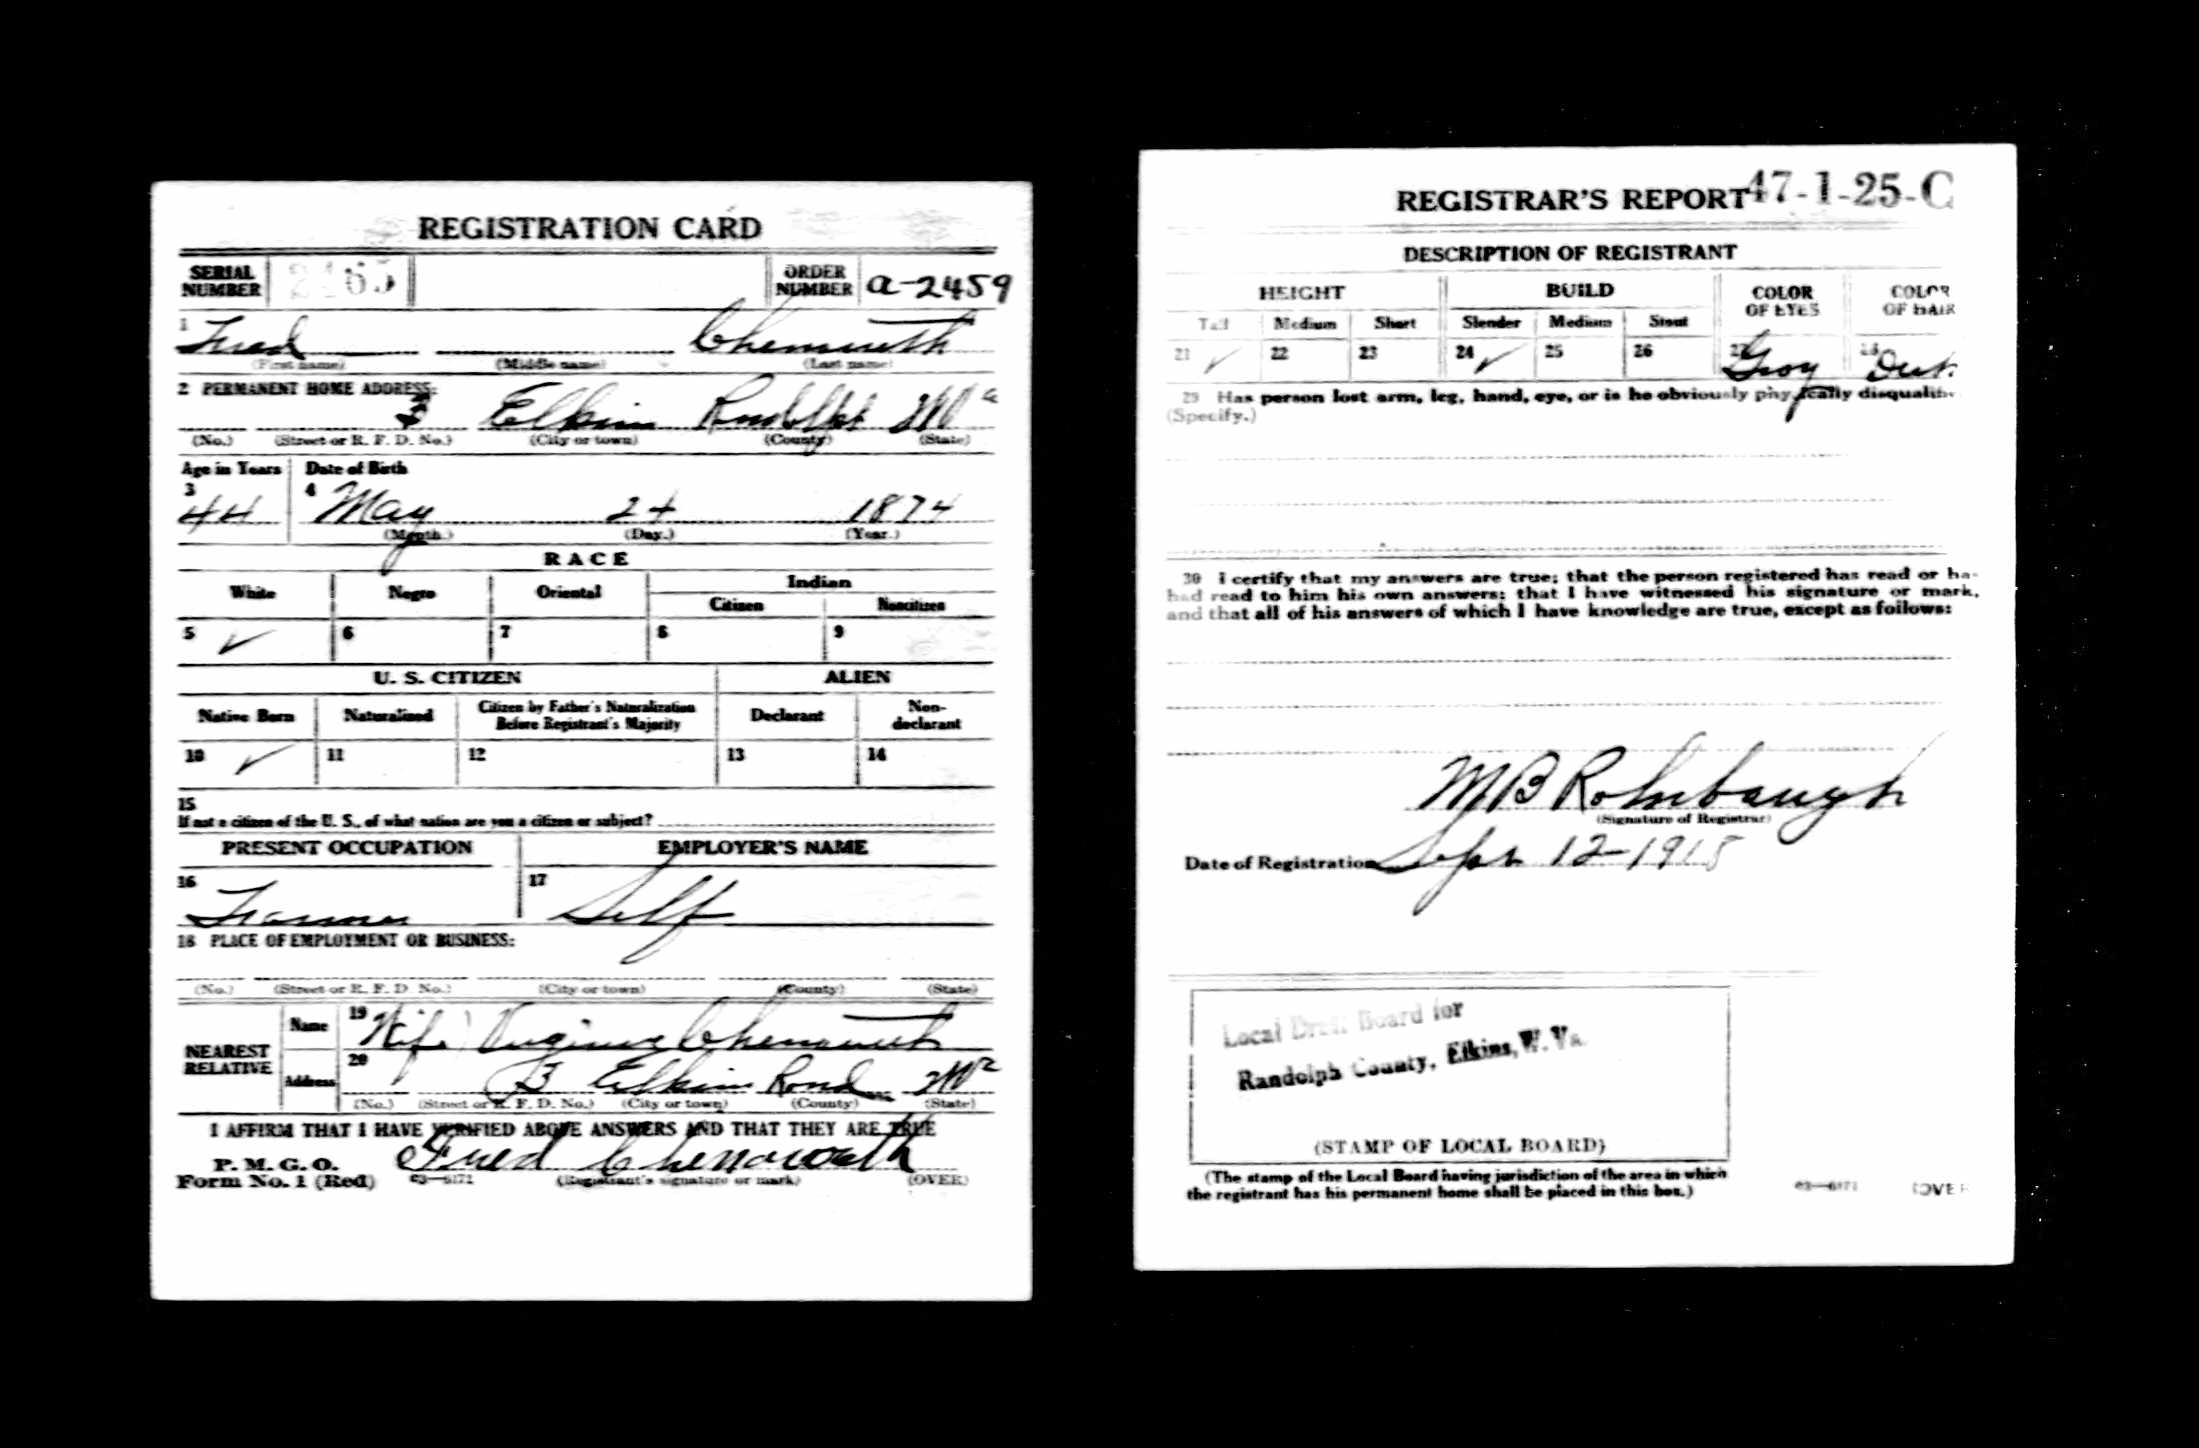 REGISTRATION CARD
SERIAL NUMBER
ORDER NUMBER a-2459
1 Fred Chenowith
(First name) (Middle name) (Last name)
2 PERMANENT HOME ADDRESS:
3 Elkins Randolph W Va
(No.) (Street or R. F. D. No.) (City or town) (County) (State)
Age in Years Date of Birth
3 44 4 May 24 1874
(Month.) (Day.) (Year.)
RACE
White Negro Oriental Indian
Citizen Noncitizen
5 ✓ 6 7 8 9
U. S. CITIZEN ALIEN
Native Born Naturalized Citizen by Father's Naturalization Before Registrant's Majority Declarant Non-declarant
10 ✓ 11 12 13 14
15
If not a citizen of the U. S., of what nation are you a citizen or subject?
PRESENT OCCUPATION EMPLOYER'S NAME
16 Farmer 17 Self
18 PLACE OF EMPLOYMENT OR BUSINESS:
(No.) (Street or R. F. D. No.) (City or town) (County) (State)
NEAREST RELATIVE
Name 19 Wife Chenowith
Address 20 3 Elkins Rand
(No.) (Street or R. F. D. No.) (City or town) (County) (State)
I AFFIRM THAT I HAVE VERIFIED ABOVE ANSWERS AND THAT THEY ARE TRUE
P. M. G. O.
Form No. 1 (Red) 03—6171 Fred Chenowath
(Registrant's signature or mark) (OVER)
REGISTRAR'S REPORT 47-1-25-C
DESCRIPTION OF REGISTRANT
HEIGHT BUILD COLOR OF EYES COLOR OF HAIR
Tall Medium Short Slender Medium Stout
21 ✓ 22 23 24 ✓ 25 26 27 Gray 28
29 Has person lost arm, leg, hand, eye, or is he obviously physically disqualified
(Specify.)
30 I certify that my answers are true; that the person registered has read or has
had read to him his own answers; that I have witnessed his signature or mark,
and that all of his answers of which I have knowledge are true, except as follows:
M B Rohrbaugh
(Signature of Registrar)
Date of Registration Sept 12-1918
Local Draft Board for
Randolph County, Elkins, W. Va.
(STAMP OF LOCAL BOARD)
(The stamp of the Local Board having jurisdiction of the area in which
the registrant has his permanent home shall be placed in this box.)
03—6171 (OVER